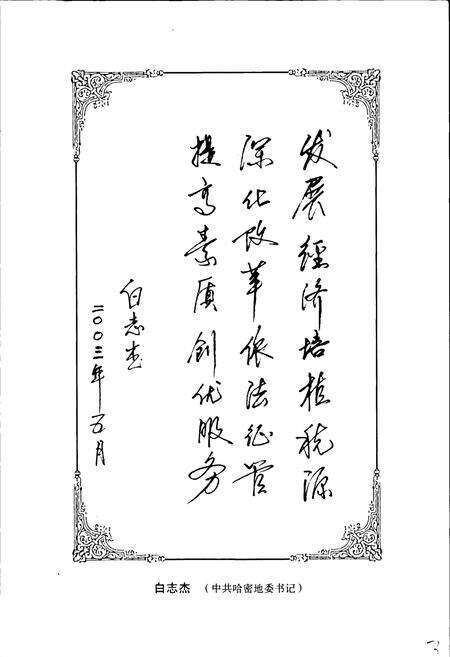 发展經济培植税源
深化改革依法征管
提高素质创优服务
白志杰
二〇〇三年五月
白志杰 (中共哈密地委书记)